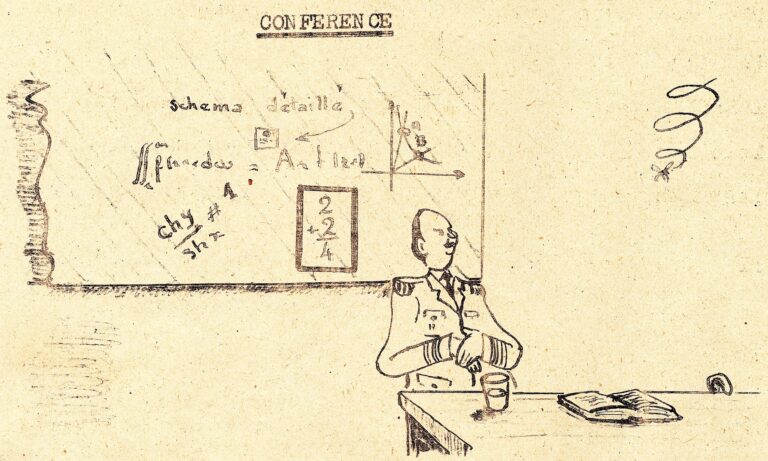 CONFERENCE
schema détaillé
a
B
chy # 1
shx
2
+2
4